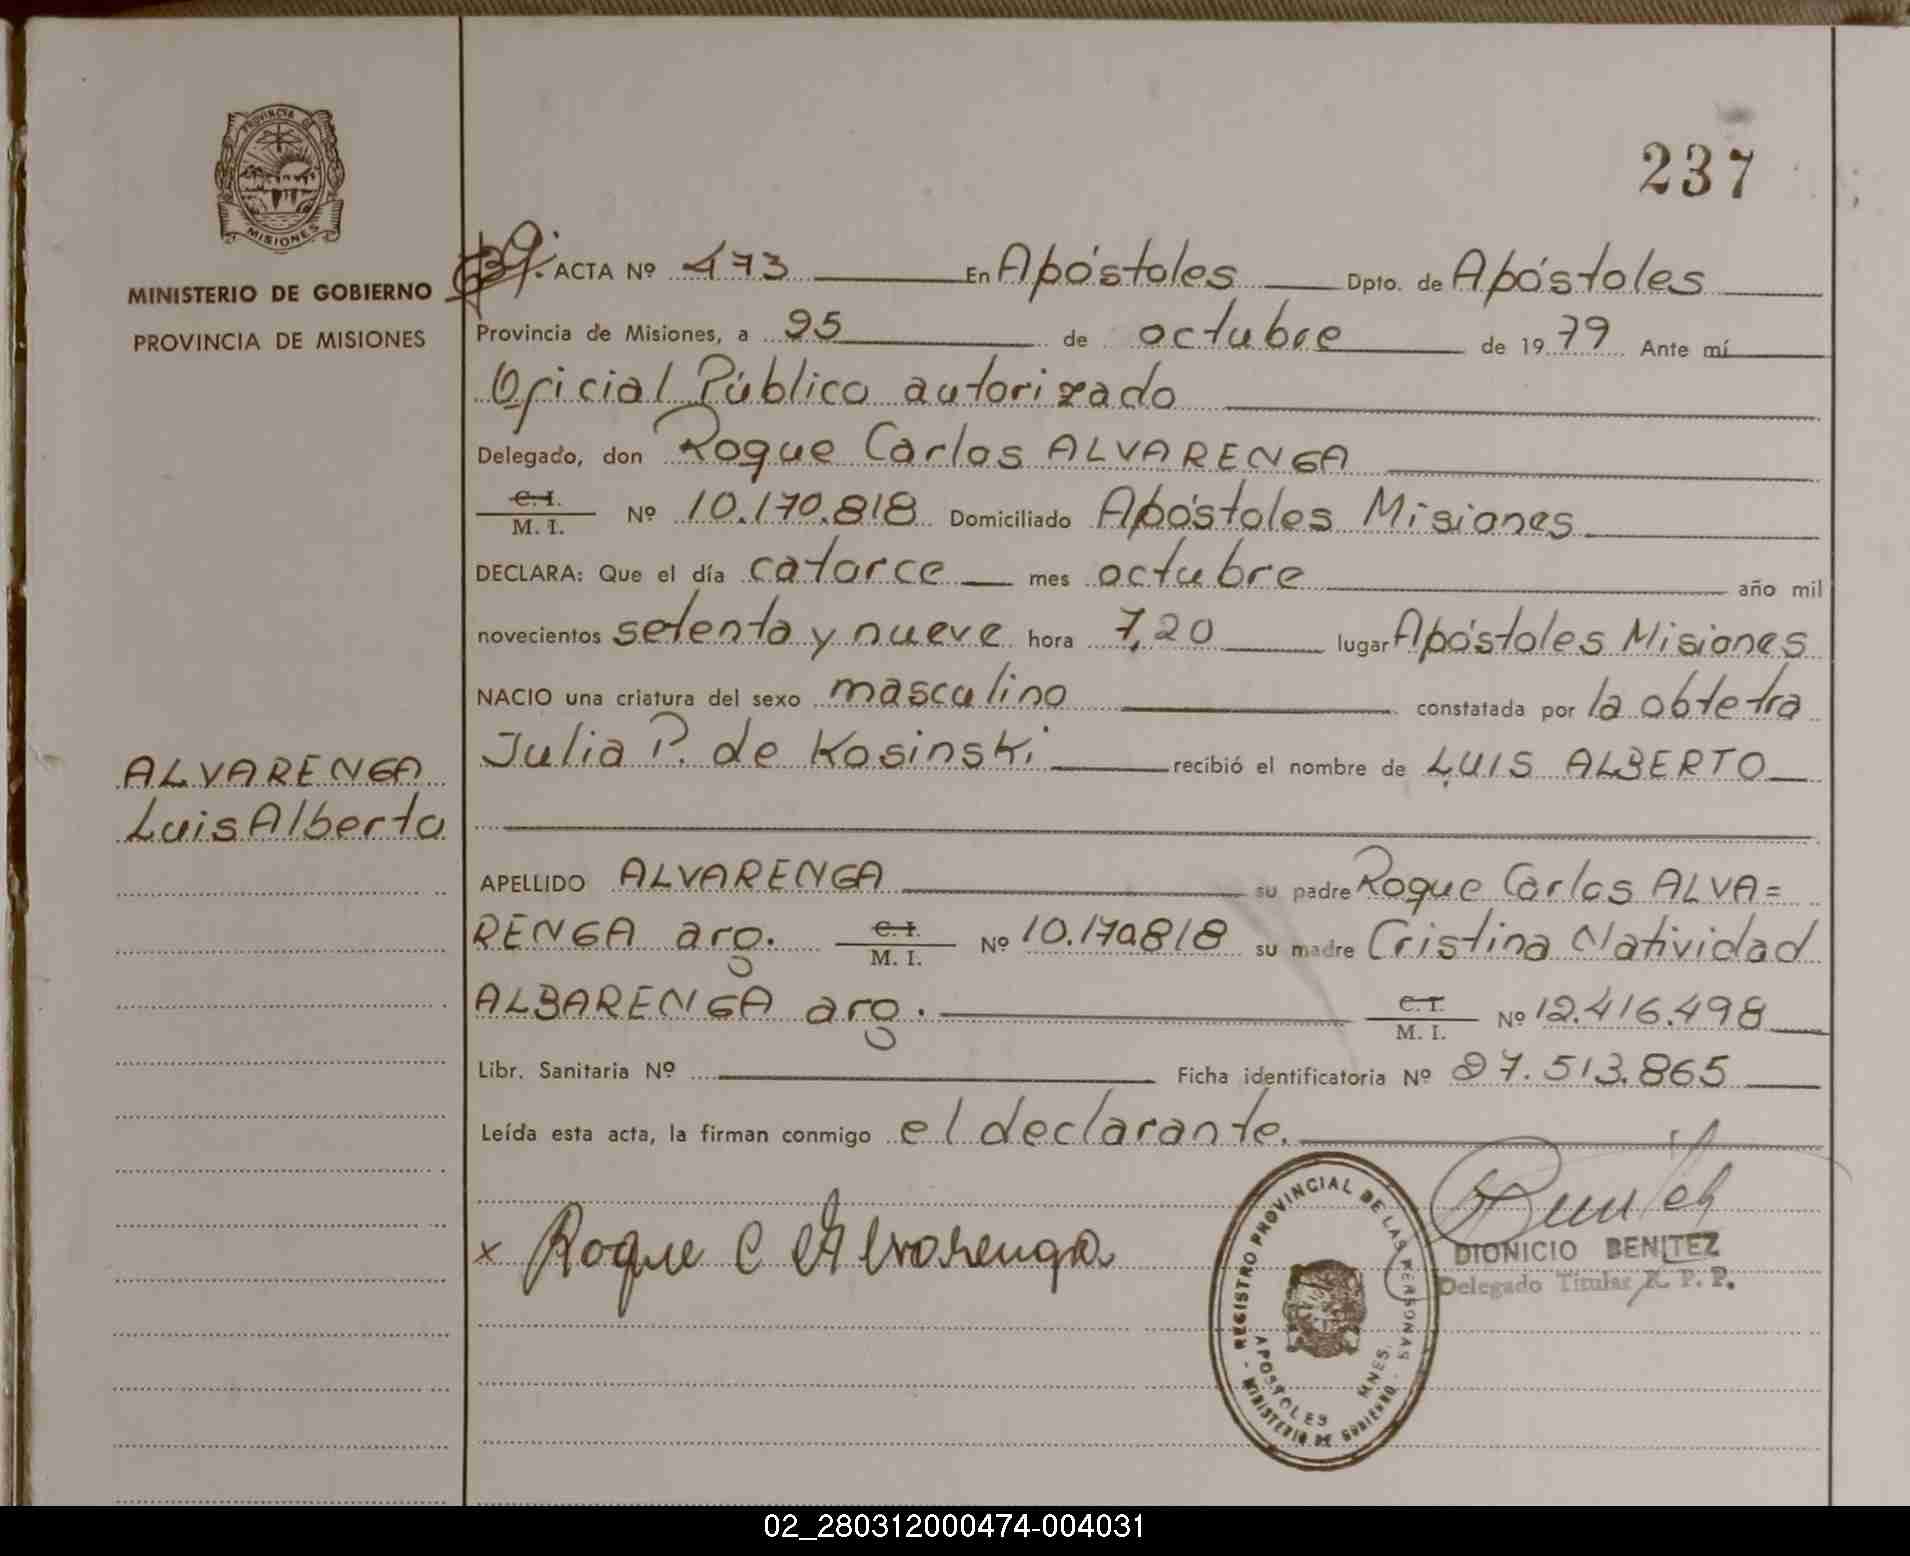 237
PROVINCIA DE
MISIONES
MINISTERIO DE GOBIERNO
PROVINCIA DE MISIONES
ACTA Nº 473 En Apóstoles Dpto. de Apóstoles
Provincia de Misiones, a 25 de octubre de 1979 Ante mí
Oficial Público autorizado
Delegado, don Roque Carlos ALVARENGA
C. I.
M. I. Nº 10.170.818 Domiciliado Apóstoles Misiones
DECLARA: Que el día catorce mes octubre año mil
novecientos setenta y nueve hora 7,20 lugar Apóstoles Misiones
NACIO una criatura del sexo masculino constatada por la obtetra
Julia P. de Kosinski recibió el nombre de LUIS ALBERTO
ALVARENGA
Luis Alberto
APELLIDO ALVARENGA su padre Roque Carlos ALVA=
RENGA arg. C. I. M. I. Nº 10.170.818 su madre Cristina Natividad
ALBARENGA arg. C. I. M. I. Nº 12.416.498
Libr. Sanitaria Nº Ficha identificatoria Nº 27.513.865
Leída esta acta, la firman conmigo el declarante.
x Roque C Alvarenga
REGISTRO PROVINCIAL DE LAS PERSONAS
APOSTOLES MNES.
MINISTERIO DE GOBIERNO
DIONICIO BENITEZ
Delegado Titular R. P. P.
02_280312000474-004031